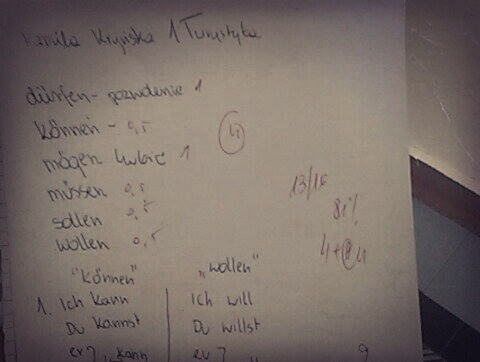 Kamila Kryńska 1 Turystyka
dürfen - pozwolenie 1
können - 0,5
4
mögen lubić 1
müssen 0,5
13/16
sollen 0,5
81%
wollen 0,5
"können" "wollen"
1. Ich kann Ich will
Du kannst Du willst
er kann er